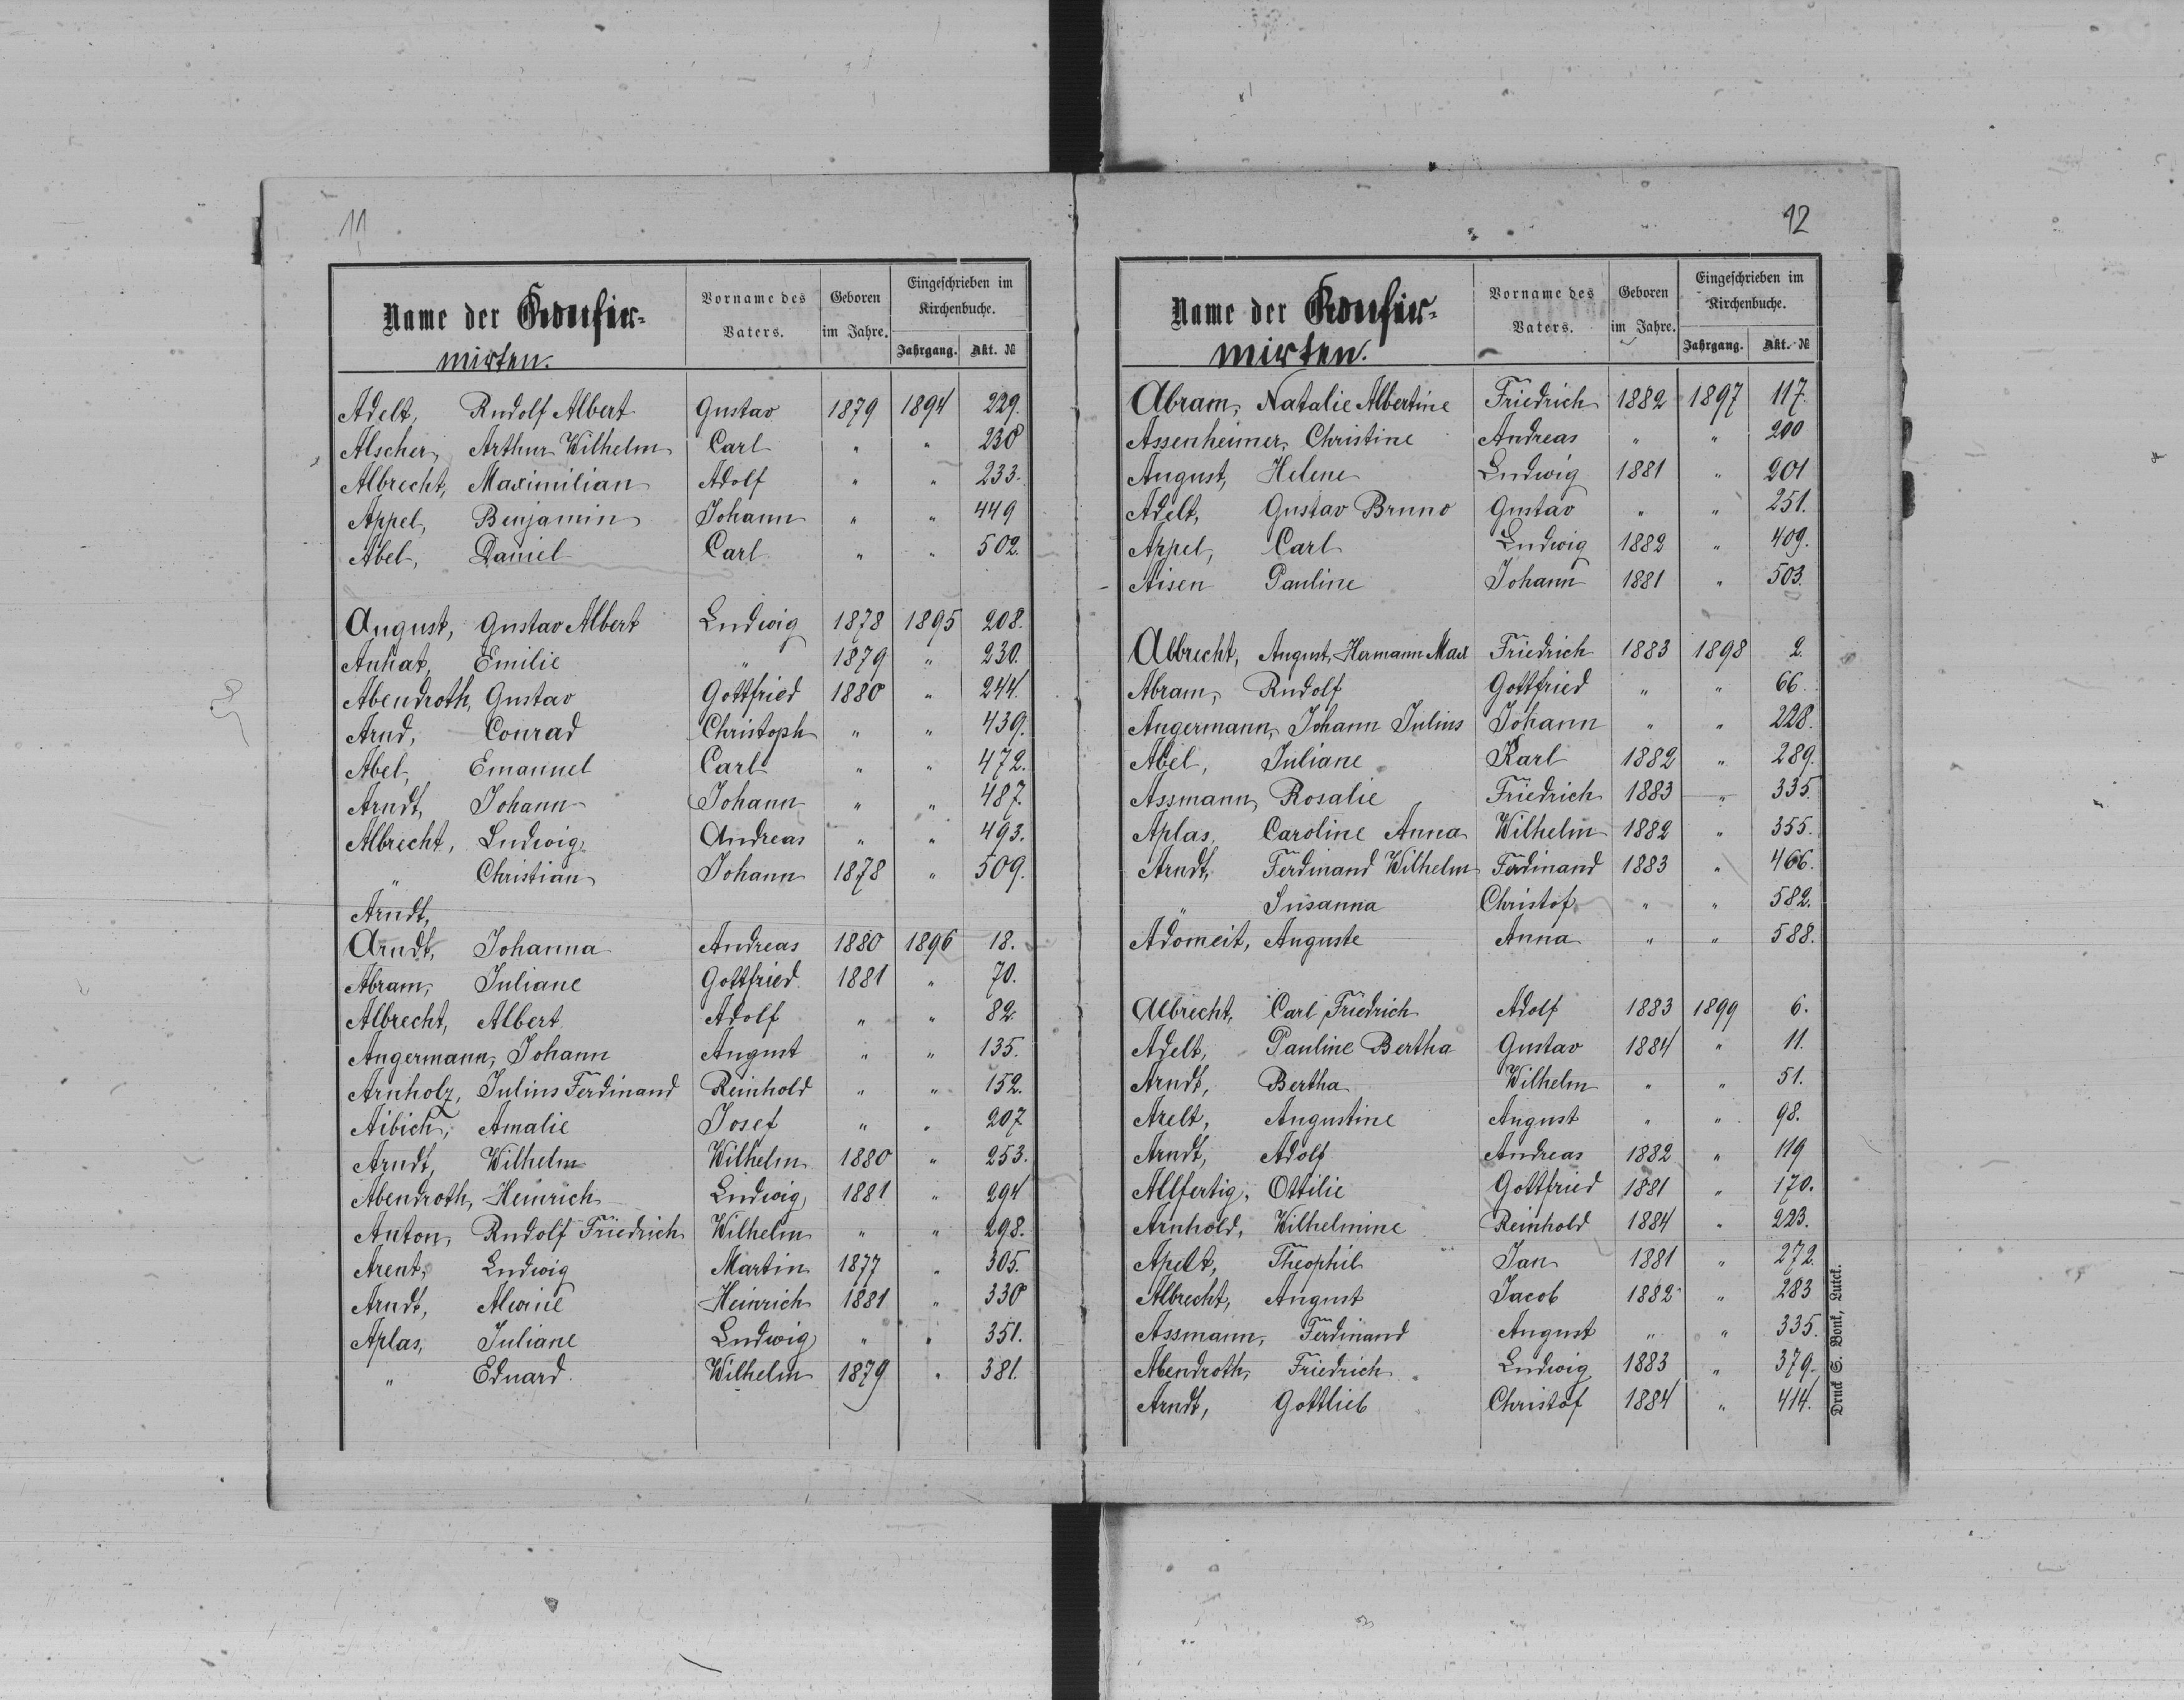 11
Name der Konfir-
mirten.
Vorname des Vaters.
Geboren im Jahre.
Eingeschrieben im Kirchenbuche.
Jahrgang. Akt. №
Adelt, Rudolf Albert Gustav 1879 1894 229.
Alscher, Arthur Wilhelm Carl " " 230
Albrecht, Maximilian Adolf " " 233.
Appel, Benjamin Johann " " 449
Abel, Daniel Carl " " 502.
August, Gustav Albert Ludwig 1878 1895 208.
Anhat, Emilie " 1879 " 230.
Abendroth, Gustav Gottfried 1880 " 244.
Arnd, Conrad Christoph " " 439.
Abel, Emanuel Carl " " 472.
Arndt, Johann Johann " " 487.
Albrecht, Ludwig Andreas " " 493.
" Christian Johann 1878 " 509.
Arndt,
Arndt, Johanna Andreas 1880 1896 18.
Abram, Juliane Gottfried 1881 " 70.
Albrecht, Albert Adolf " " 82.
Angermann, Johann August " " 135.
Arnholz, Julius Ferdinand Reinhold " " 152.
Aibich, Amalie Josef " " 207
Arndt, Wilhelm Wilhelm 1880 " 253.
Abendroth, Heinrich Ludwig 1881 " 294
Anton, Rudolf Friedrich Wilhelm " " 298.
Arent, Ludwig Martin 1877 " 305.
Arndt, Alwine Heinrich 1881 " 330
Aplas, Juliane Ludwig " " 351.
" Eduard Wilhelm 1879 " 381.
12
Name der Konfir-
mirten.
Vorname des Vaters.
Geboren im Jahre.
Eingeschrieben im Kirchenbuche.
Jahrgang. Akt. №
Abram, Natalie Albertine Friedrich 1882 1897 117.
Assenheimer, Christine Andreas " " 200
August, Helene Ludwig 1881 " 201
Adelt, Gustav Bruno Gustav " " 251.
Appel, Carl Ludwig 1882 " 409.
Aisen Pauline Johann 1881 " 503.
Albrecht, August, Hermann Max Friedrich 1883 1898 2.
Abram, Rudolf Gottfried " " 66.
Angermann, Johann Julius Johann " " 228.
Abel, Juliane Karl 1882 " 289.
Assmann, Rosalie Friedrich 1883 " 335.
Aplas, Caroline Anna Wilhelm 1882 " 355.
Arndt, Ferdinand Wilhelm Ferdinand 1883 " 466.
" Susanna Christof " " 582.
Adomeit, Auguste Anna " " 588.
Albrecht, Carl Friedrich Adolf 1883 1899 6.
Adelt, Pauline Bertha Gustav 1884 " 11.
Arndt, Bertha Wilhelm " " 51.
Arelt, Augustine August " " 98.
Arndt, Adolf Andreas 1882 " 119
Allfertig, Ottilie Gottfried 1881 " 170.
Arnhold, Wilhelmine Reinhold 1884 " 223.
Apelt, Theophil Jan 1881 " 272.
Albrecht, August Jacob 1882 " 283
Assmann, Ferdinand August " " 335.
Abendroth, Friedrich Ludwig 1883 " 379.
Arndt, Gottlieb Christof 1884 " 414.